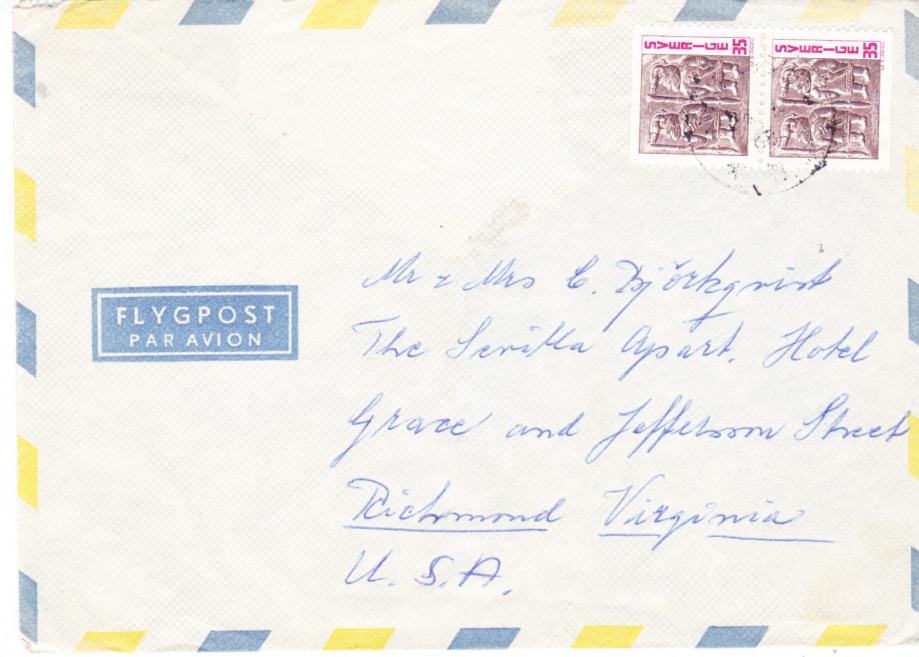 SVERIGE 35
SVERIGE 35
FLYGPOST
PAR AVION
Mr & Mrs C. Björkqvist
The Sevilla Apart. Hotel
Grace and Jefferson Street
Richmond Virginia
U.S.A.